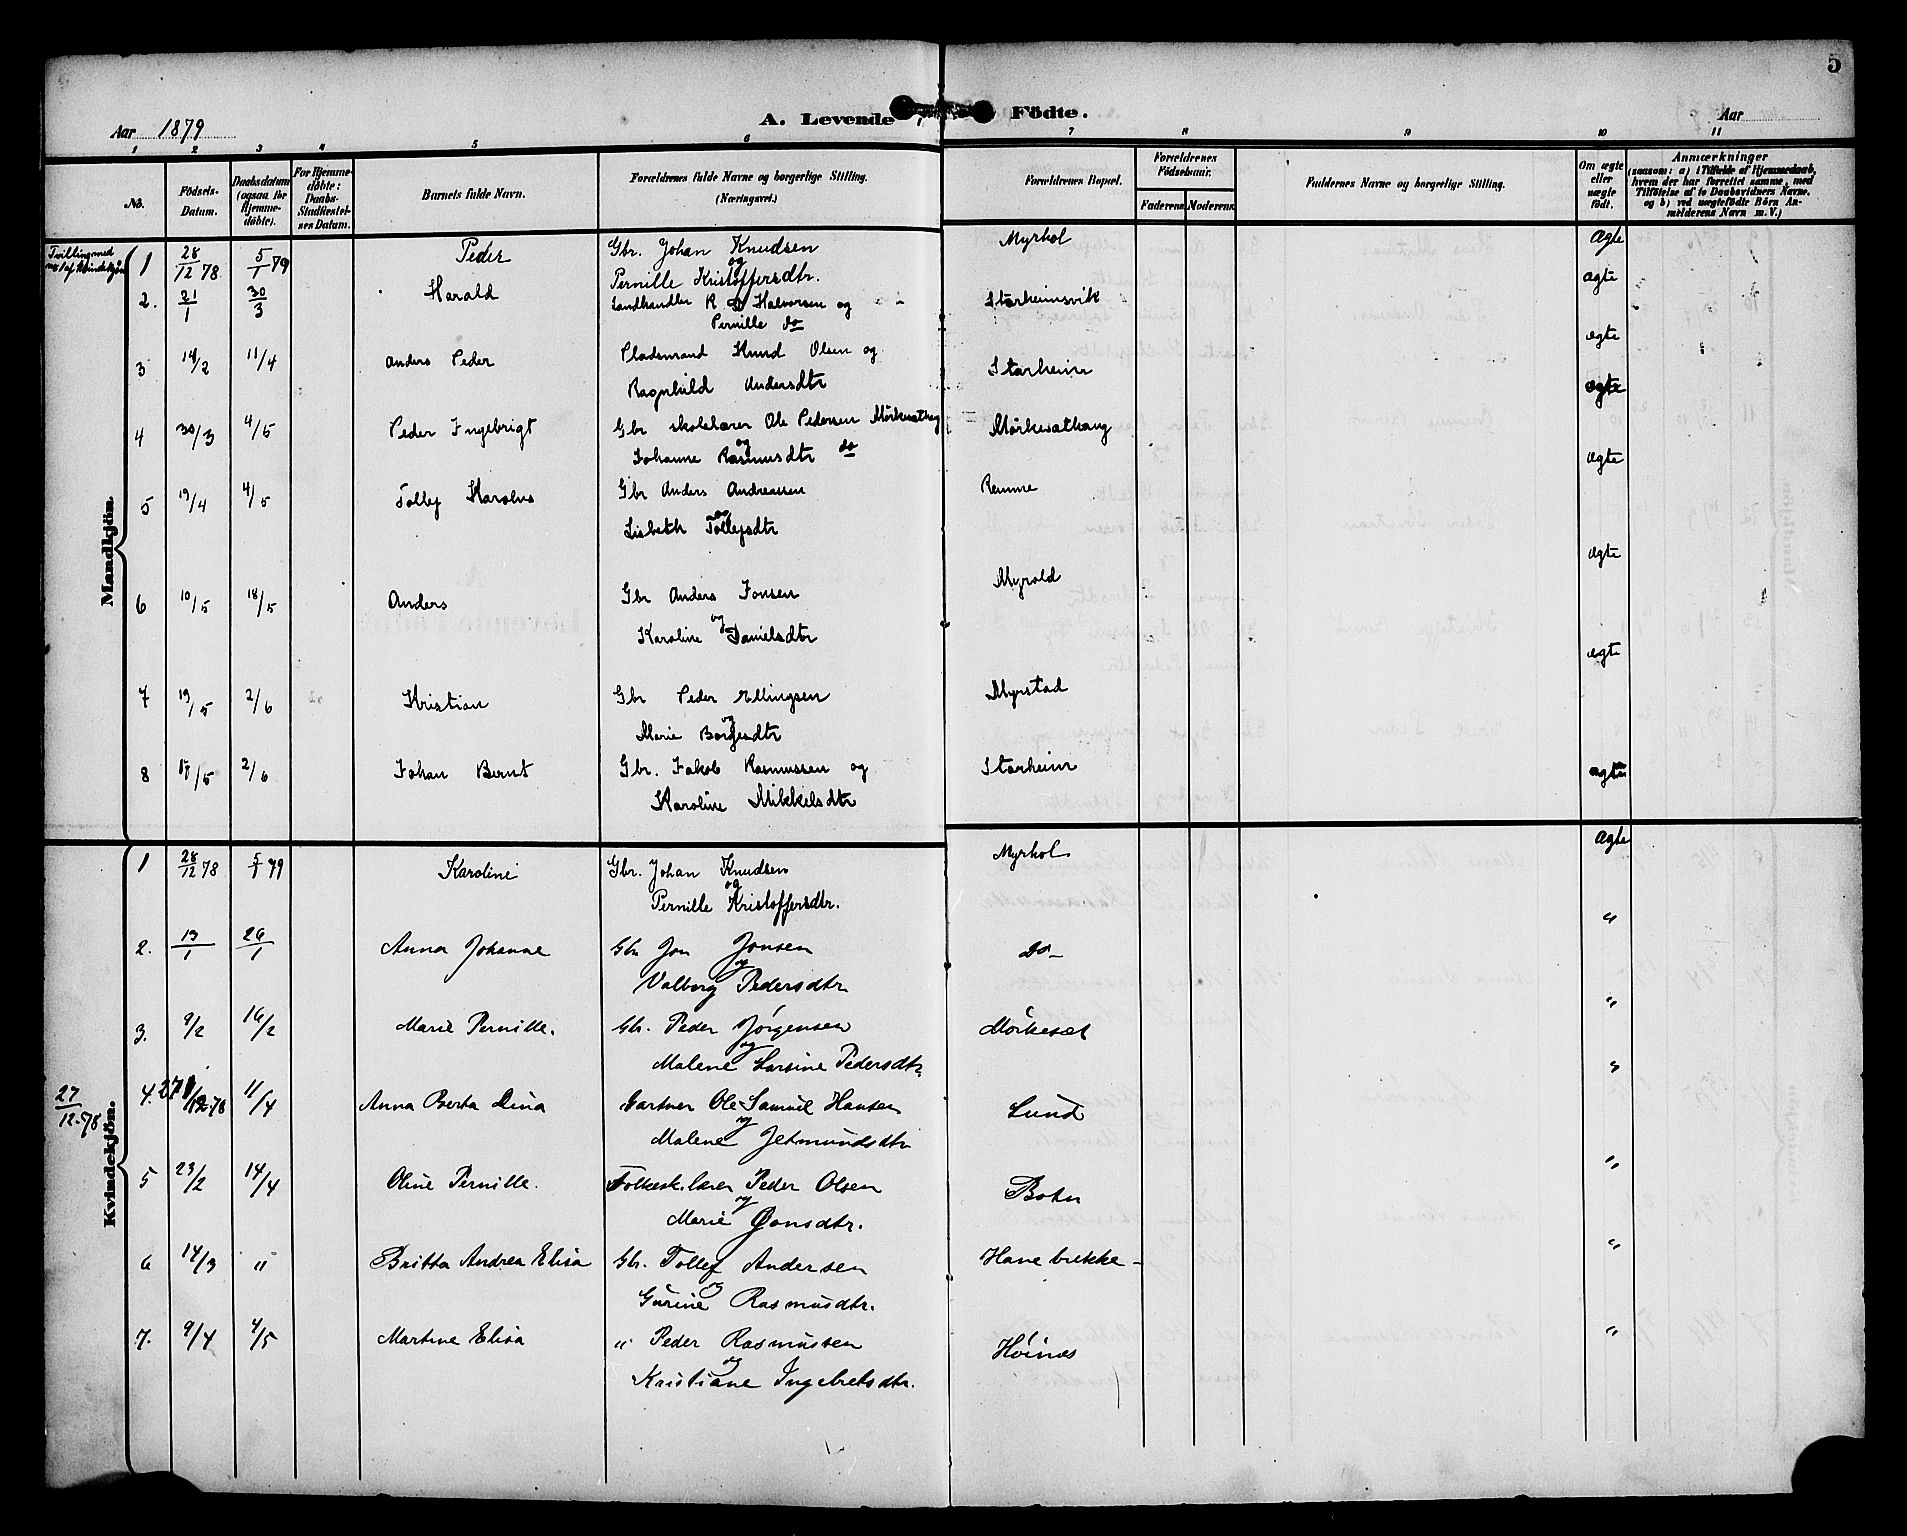 5
Aar 1879
A. Levende Födte.
Aar
1 2 3 4 5 6 7 8 9 10 11
No.
Födsels-Datum.
Daabsdatum (ogsaa for Hjemmedöbte).
For Hjemmedöbte: Daabs-Stadfæstelses Datum.
Barnets fulde Navn.
Forældrenes fulde Navne og borgerlige Stilling. (Næringsvei.)
Forældrenes Bopæl.
Forældrenes Födselsaar.
Faderens Moderens
Faddernes Navne og borgerlige Stilling.
Om ægte eller uægte født.
Anmærkninger
(saasom: a) i Tilfælde af Hjemmedaab, hvem der har forrettet samme, med Tilföielse af to Daabsvidners Navne, og b) ved uægtefödte Börn Anmelderens Navn m. V.)
Mandkjön.
Tvilling med No 1 af Kvindekjön
1 28/12 78 5/1 79 Peder Gbr. Johan Knudsen Myrhol Ægte
og
Pernille Kristoffersdtr.
2. 21/1 30/3 Harald Landhandler R. D Halvorsen og Starheimsvik ægte
Pernille do
3 14/2 11/4 Anders Peder Pladsmand Knud Olsen og Starheim ægte
Ragnhild Andersdtr
4 30/3 4/5 Peder Ingebrigt Gbr skolelærer Ole Pedersen Mörkesæthaug Mörkesæthaug ægte
og
Johanne Rasmusdtr do
5 19/4 4/5 Tollef Karolus Gbr Anders Andreassen Remme ægte
og
Lisbeth Tollefsdtr
6 10/5 18/5 Anders Gbr Anders Jonsen Myrold ægte
og
Karoline Danielsdtr
7 19/5 2/6 Kristian Gbr Peder Ellingsen Myrstad ægte
og
Marie Borgesdtr
8 17/5 2/6 Johan Bernt Gbr. Jakob Rasmussen og Starheim ægte
Karoline Mikkelsdtr
Kvindekjön.
1 28/12 78 5/1 79 Karoline Gbr. Johan Knudsen Myrhol Ægte
og
Pernille Kristoffersdtr.
2. 13/1 26/1 Anna Johanne Gbr Jon Jonsen do- "
og
Valborg Pedersdtr
3. 9/2 16/2 Marie Pernille. Gbr. Peder Jørgensen Mörkesæt "
og
Malene Larsine Pedersdtr.
27/12.78 4. 27/12 78 11/4 Anna Berta Dina Gartner Ole Samuel Hansen Lund "
og
Malene Jetmundsdtr
5 23/2 14/4 Oline Pernille. Folkesk.lærer Peder Olsen Botn "
og
Marie Jonsdtr.
6 14/3 " Britta Andrea Elisa Gbr. Tollef Andersen Havebrekke- "
og
Gurine Rasmusdtr.
7. 9/4 4/5 Martine Elisa " Peder Rasmussen Höinæs "
og
Kristiane Ingebretsdtr.